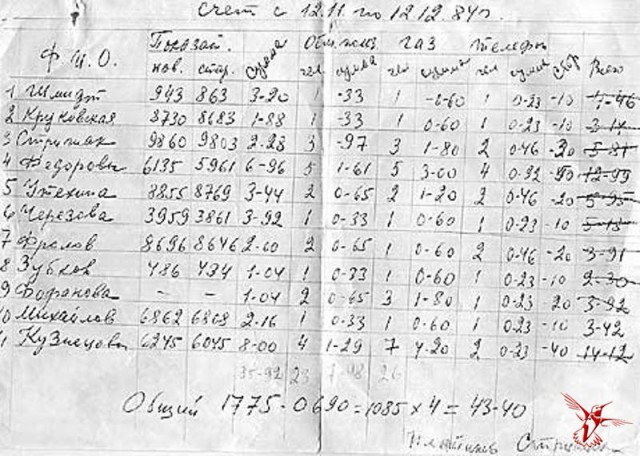 Счет с 12.11 по 12.12.84г.
Ф.И.О. Показат. нов. стар. сумма Общ. польз. чел. сумма газ чел сумма телефон чел сумма сбор Всего
1 Шмидт 943 863 3-20 1 -33 1 -0-60 1 0-23 -10
2 Круковская 8730 8683 1-88 1 -33 1 0-60 1 0-23 -10
3 9860 9803 2-28 3 -97 3 1-80 2 0-46 -30 5-81
4 Федоровы 6135 5961 6-96 5 1-61 5 3-00 4 0-92 -50 12-99
5 Утехина 8855 8769 3-44 2 0-65 2 1-20 2 0-46 -20 5-95
6 Черезова 3959 3861 3-92 1 0-33 1 0-60 1 0-23 -10
7 Фролов 8696 8646 2-00 2 0-65 1 0-60 2 0-46 -20 3-91
8 Зубков 486 1-04 1 0-33 1 0-60 1 0-23 -10 2-30
9 - - 1-04 2 0-65 3 1-80 1 0-23 20 3-92
10 Михайлов 6862 6808 2-16 1 0-33 1 0-60 1 0-23 -10 3-42
11 Кузнецовы 6245 6045 8-00 4 1-29 7 4-20 2 0-23 -40 14-12
35-92 23 7-48 26
Общий 1775-0690=1085 x 4 = 43-40